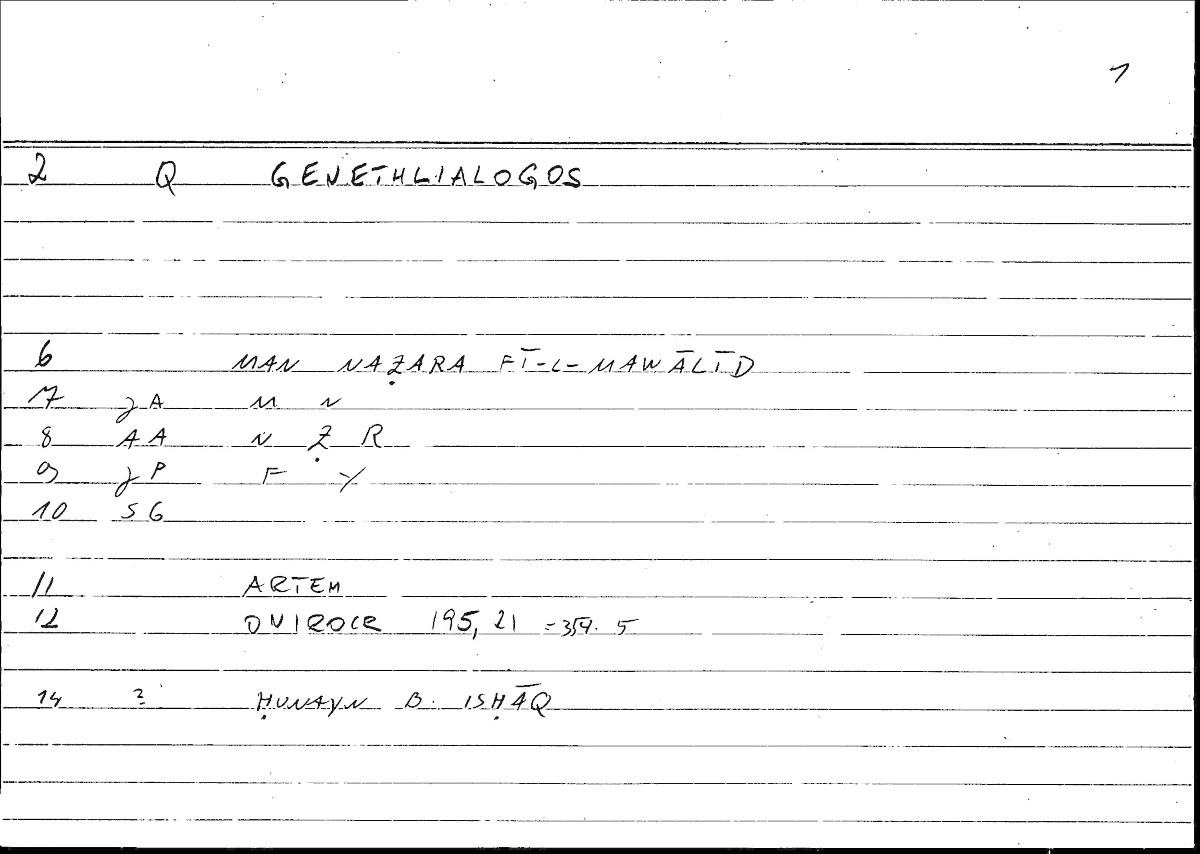 1
2 Q GENETHLIALOGOS
6 MAN NAẒARA FĪ-L-MAWĀLĪD
7 JA M N
8 AA N Ẓ R
9 JP F Y
10 SG
11 ARTEM
12 ONIROCR 195, 21 = 354. 5
14 ? ḤUNAYN B. ISḤĀQ